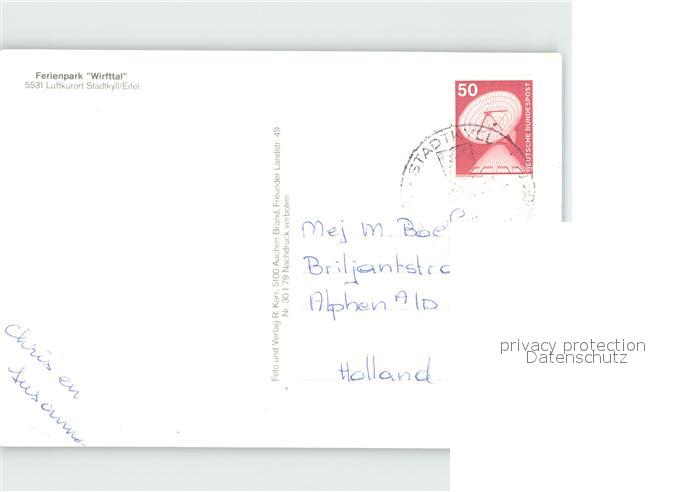 Ferienpark "Wirfttal"
5531 Luftkurort Stadtkyll/Eifel
50
DEUTSCHE BUNDESPOST
STADTKYLL
Foto und Verlag R. Korr, 5100 Aachen-Brand, Freunder Landstr. 49
Nr. 30 1 79 Nachdruck verboten
Mej M. Boe
Briljantstr
Alphen A/D
Holland
Chris en
Susanne
privacy protection
Datenschutz